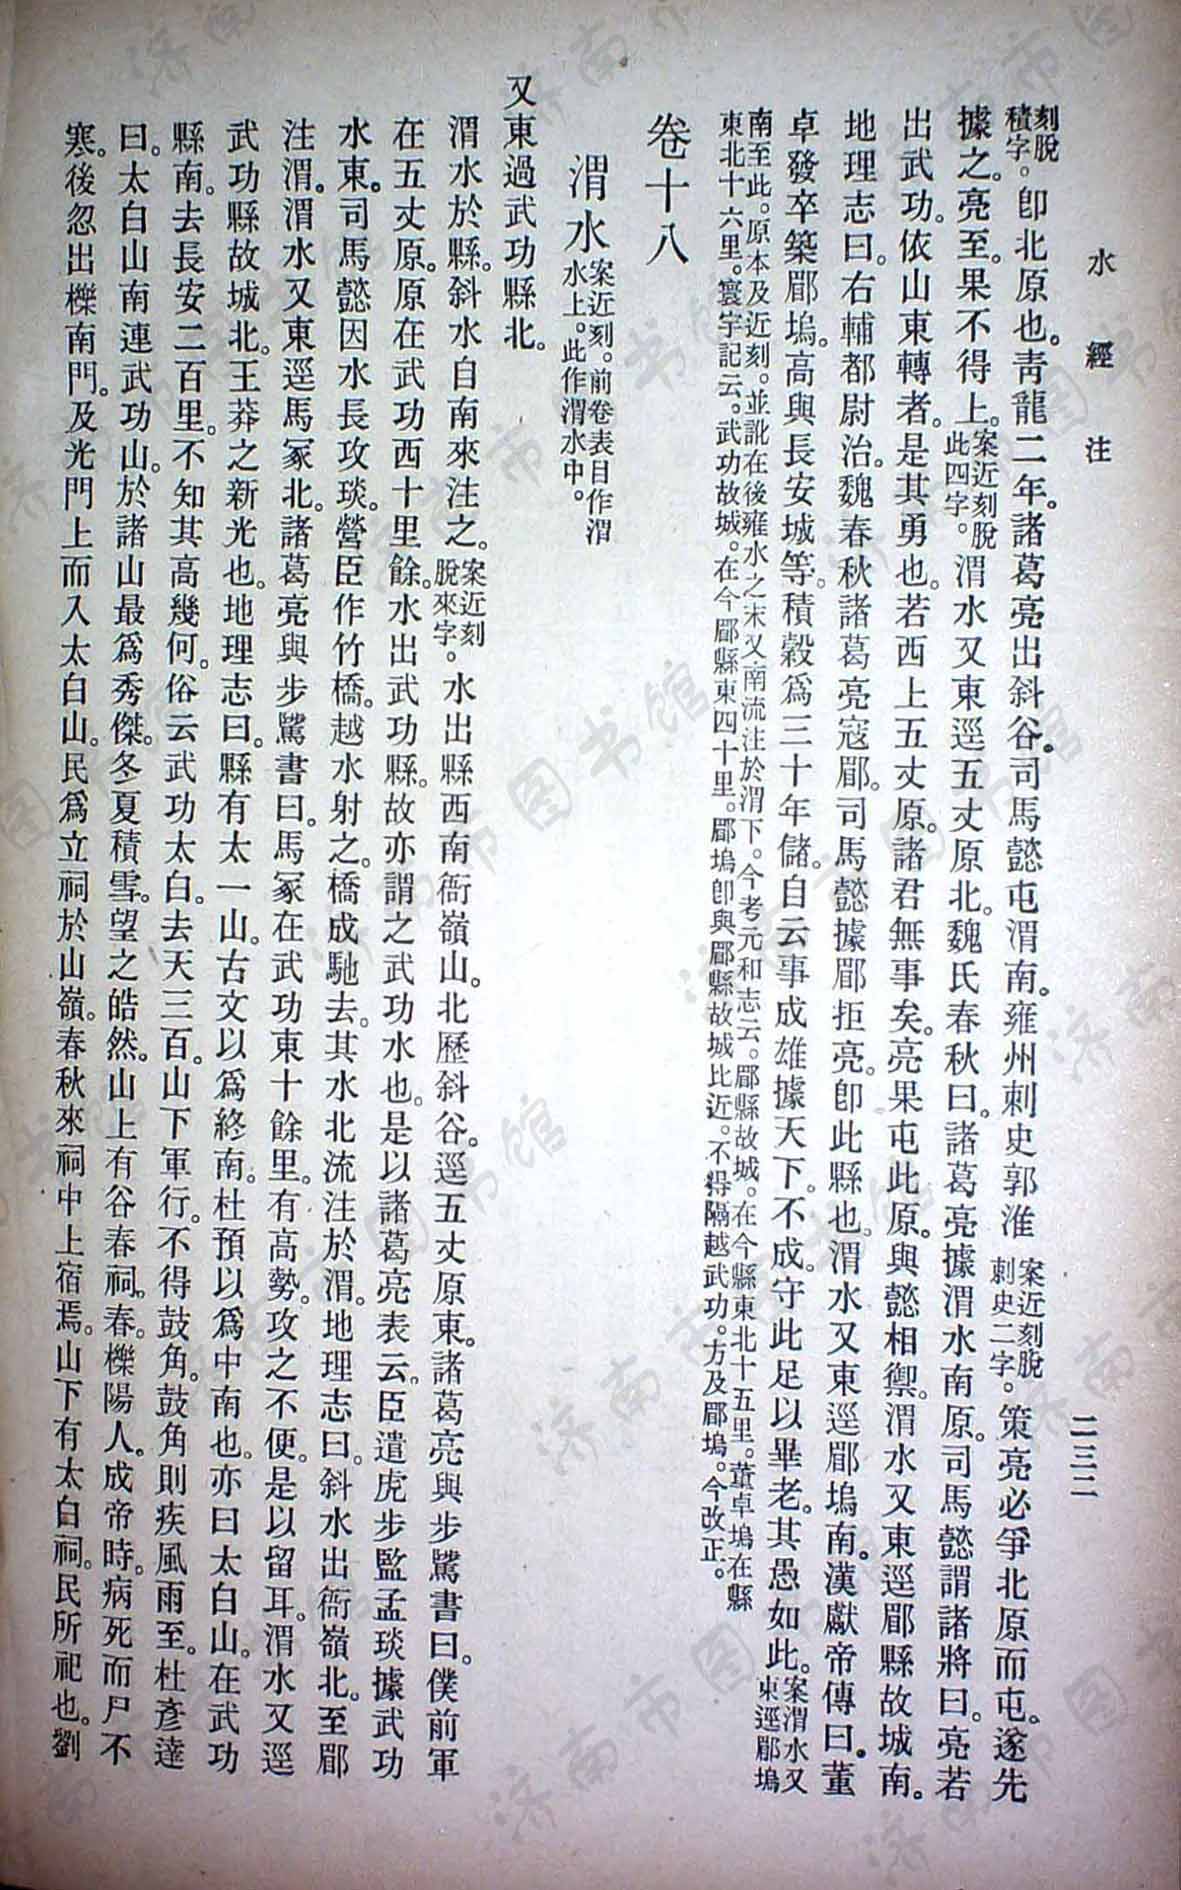 水經注
二三二
刻脫積字。卽北原也。靑龍二年。諸葛亮出斜谷。司馬懿屯渭南。雍州刺史郭淮案近刻脫刺史二字。策亮必爭北原而屯。遂先
據之。亮至。果不得上。案近刻脫此四字。渭水又東逕五丈原北。魏氏春秋曰。諸葛亮據渭水南原。司馬懿謂諸將曰。亮若
出武功。依山東轉者。是其勇也。若西上五丈原。諸君無事矣。亮果屯此原。與懿相禦。渭水又東逕郿縣故城南。
地理志曰。右輔都尉治。魏春秋諸葛亮寇郿。司馬懿據郿拒亮。卽此縣也。渭水又東逕郿塢南。漢獻帝傳曰。董
卓發卒築郿塢。高與長安城等。積穀爲三十年儲。自云事成雄據天下。不成。守此足以畢老。其愚如此。案渭水又東逕郿塢
南至此。原本及近刻。並訛在後雍水之末又南流注於渭下。今考元和志云。郿縣故城。在今縣東北十五里。董卓塢在縣
東北十六里。寰宇記云。武功故城。在今郿縣東四十里。郿塢卽與郿縣故城比近。不得隔越武功。方及郿塢。今改正。
卷十八
渭水案近刻。前卷表目作渭水上。此作渭水中。
又東過武功縣北。
渭水於縣。斜水自南來注之。案近刻脫來字。水出縣西南衙嶺山。北歷斜谷。逕五丈原東。諸葛亮與步騭書曰。僕前軍
在五丈原。原在武功西十里餘。水出武功縣。故亦謂之武功水也。是以諸葛亮表云。臣遣虎步監孟琰據武功
水東。司馬懿因水長攻琰。營臣作竹橋。越水射之。橋成馳去。其水北流注於渭。地理志曰。斜水出衙嶺北。至郿
注渭。渭水又東逕馬冢北。諸葛亮與步騭書曰。馬冢在武功東十餘里。有高勢。攻之不便。是以留耳。渭水又逕
武功縣故城北。王莽之新光也。地理志曰。縣有太一山。古文以爲終南。杜預以爲中南也。亦曰太白山。在武功
縣南。去長安二百里。不知其高幾何。俗云武功太白。去天三百。山下軍行。不得鼓角。鼓角則疾風雨至。杜彥達
曰。太白山南連武功山。於諸山最爲秀傑。冬夏積雪。望之皓然。山上有谷春祠。春。櫟陽人。成帝時。病死而尸不
寒。後忽出櫟南門。及光門上而入太白山。民爲立祠於山嶺。春秋來祠中上宿焉。山下有太白祠。民所祀也。劉